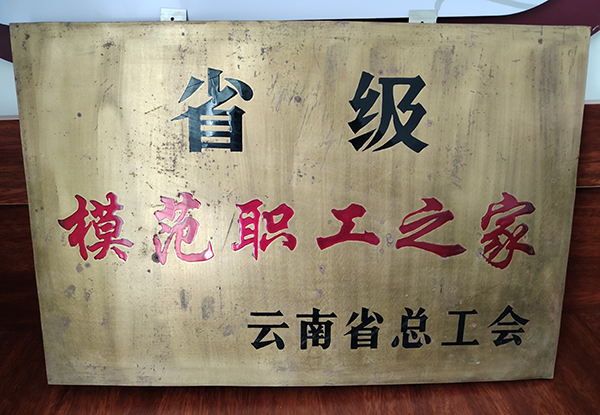 省级
模范职工之家
云南省总工会